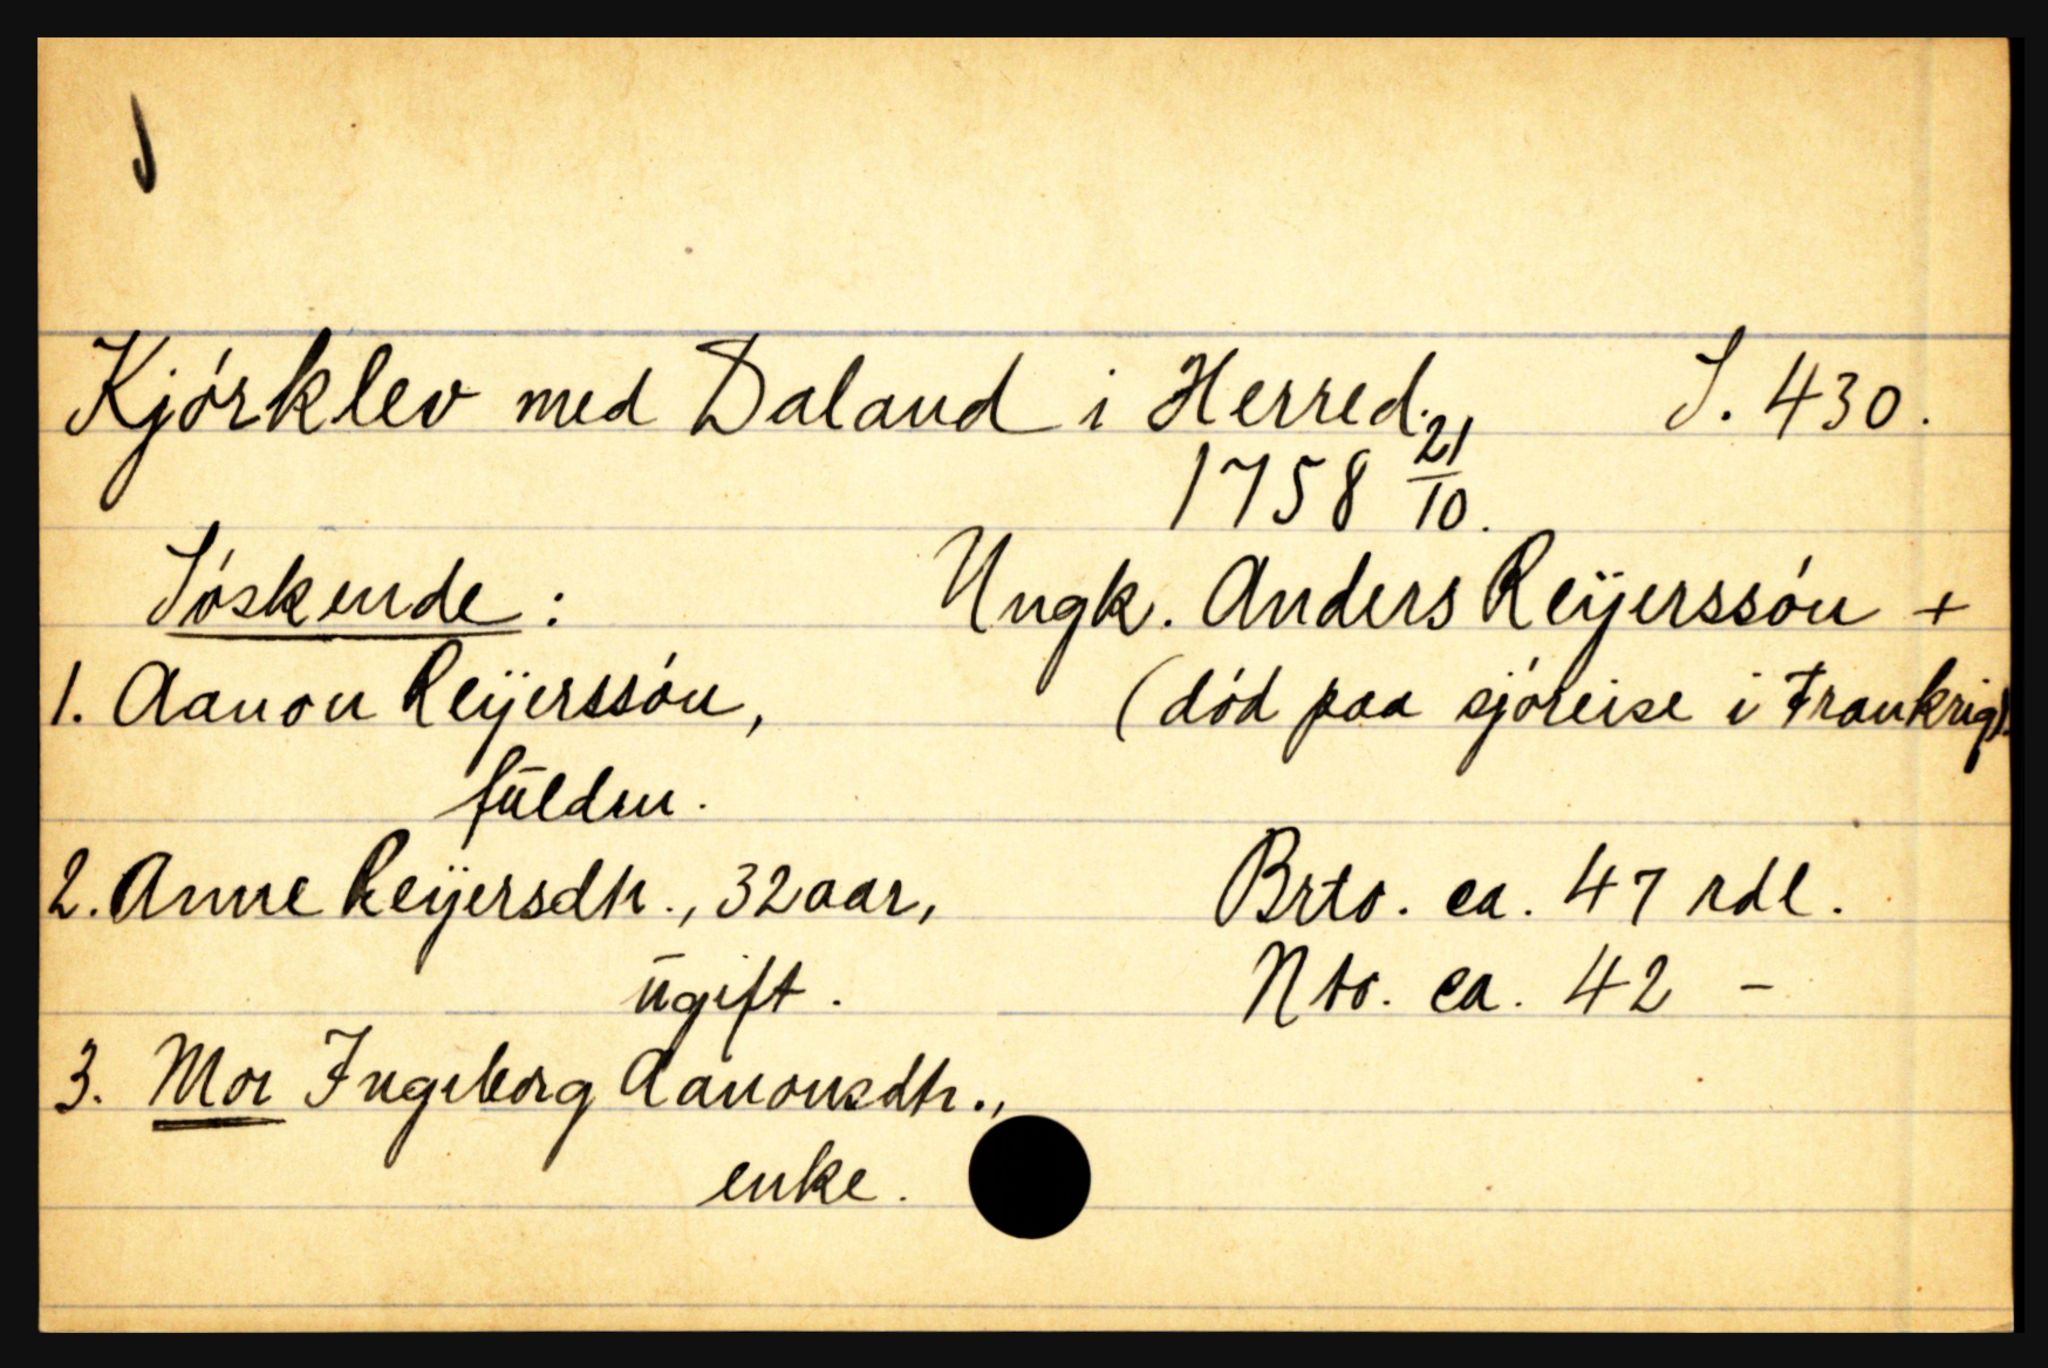 Kjórklev med Daland i Herred. S. 430.
1758 21/10.
Sóskende: Ungk. Anders Reijerssón +
1. Aanon Reijerssón, (dód paa sjóreise i Frankrig).
fūldm.
2. Anne Reijersdtr., 32 aar, Brto. ca. 47 rdl.
ūgift. Nto. ca. 42 -
3. Mor Ingeborg Aanonsdtr.,
enke.